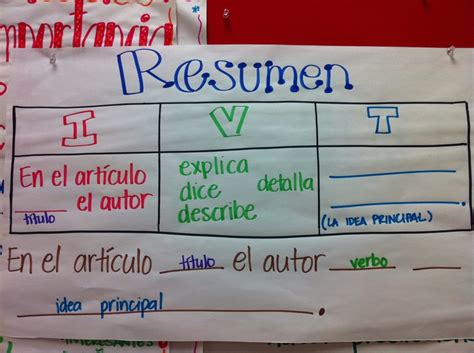 mportancia
Resumen
I V T
En el artículo
____ el autor
título
explica
dice detalla
describe
(LA IDEA PRINCIPAL)
En el artículo título el autor verbo
idea principal.
INTERESANTES